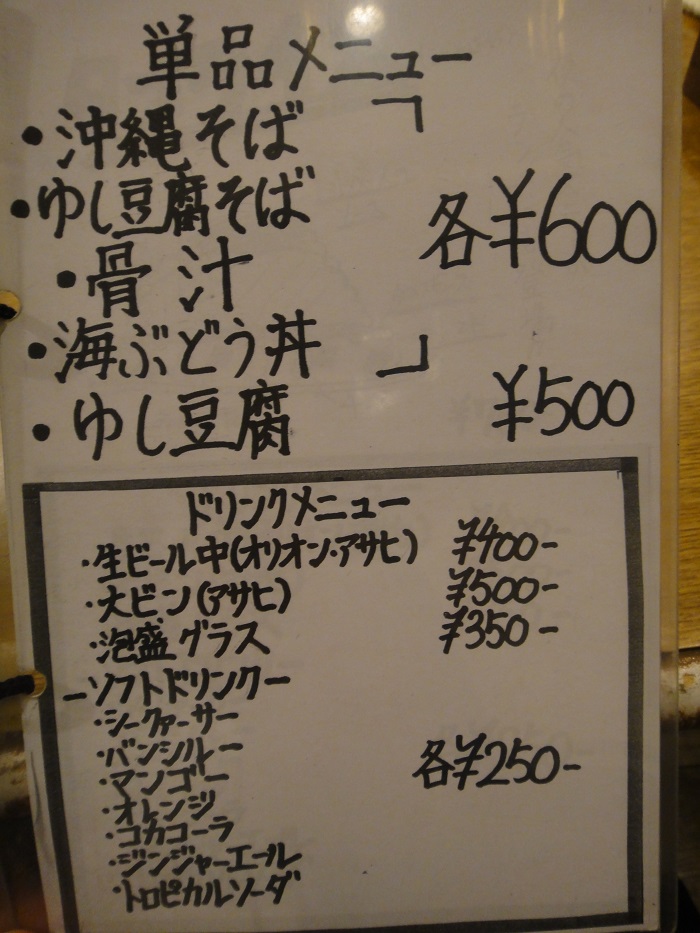 単品メニュー
・沖縄そば ┐
・ゆし豆腐そば 各¥600
・骨汁
・海ぶどう丼 ┘
・ゆし豆腐 ¥500
ドリンクメニュー
・生ビール中(オリオン・アサヒ) ¥400-
・大ビン(アサヒ) ¥500-
・泡盛グラス ¥350-
ーソフトドリンクー
・シークァーサー
・バンシルー
・マンゴー 各¥250-
・オレンジ
・コカコーラ
・ジンジャーエール
・トロピカルソーダ